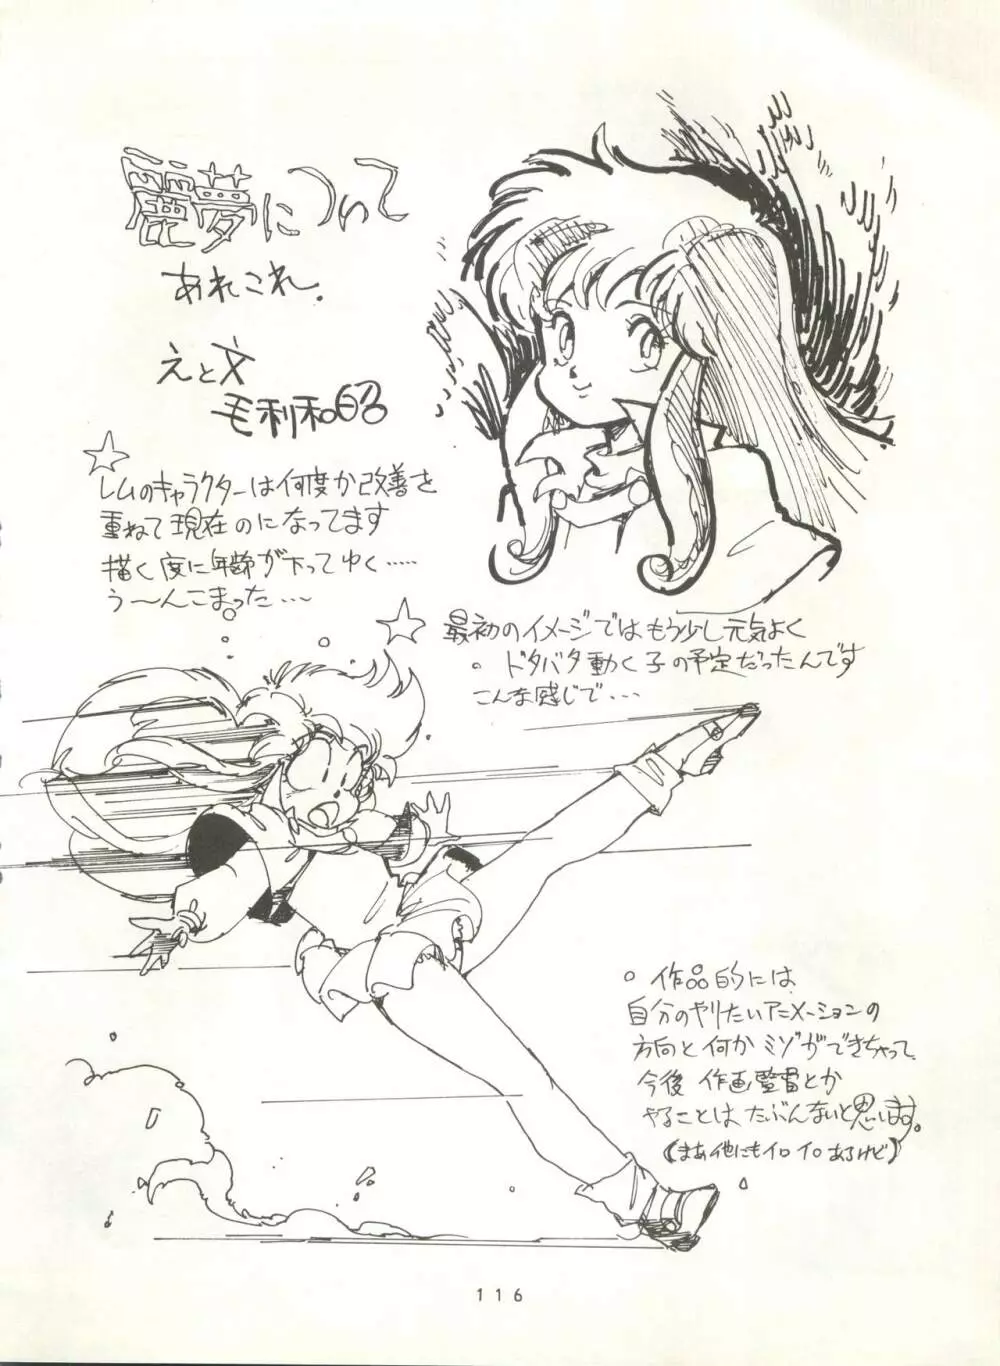 麗夢について
あれこれ.
えと文
毛利和昭
☆
レムのキャラクターは何度か改善を
重ねて現在のになってます
描く度に年齢が下ってゆく……
う〜んこまった…
☆
最初のイメージではもう少し元気よく
ドタバタ動く子の予定だったんです
こんな感じで…
作品的には
自分のやりたいアニメーションの
方向と何かミゾができちゃって
今後作画監督とか
やることはたぶんないと思います。
(まあ他にもイロイロあるけど)
116